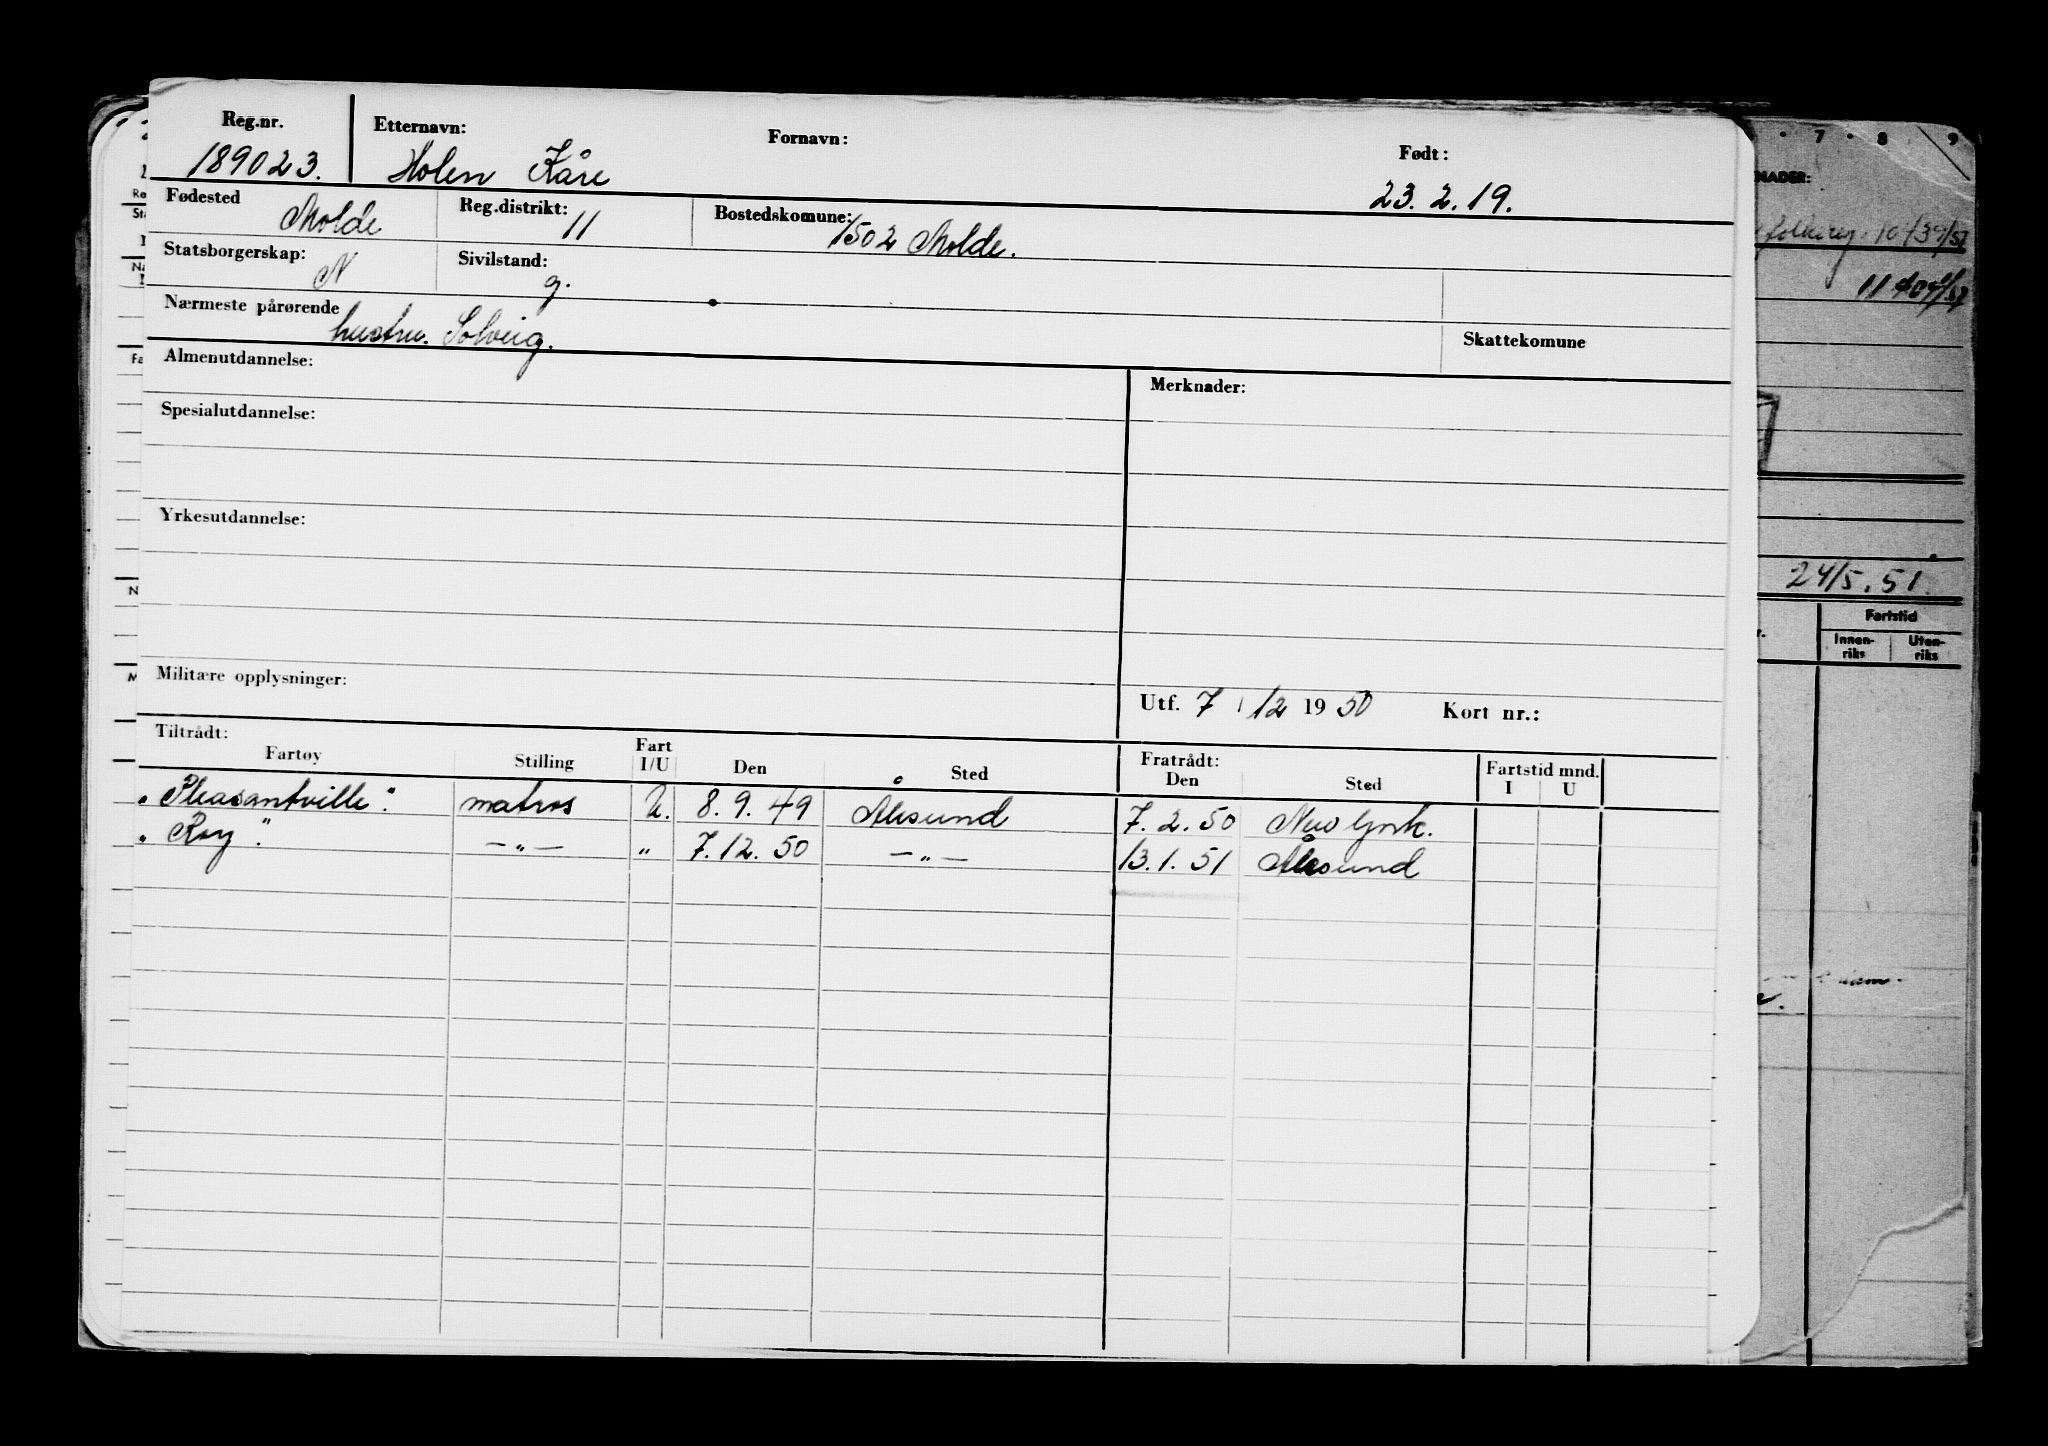 Reg.nr. Etternavn: Fornavn: Født:
189023. Holen Kåre 23. 2. 19.
Fødested Molde Reg.distrikt: 11 Bostedskomune: 1502 Molde.
Statsborgerskap: N Sivilstand: g.
Nærmeste pårørende hustru. Solveig. Skattekomune
Almenutdannelse: Merknader:
Spesialutdannelse:
Yrkesutdannelse:
Militære opplysninger: Utf. 7 / 12 19 50 Kort nr.:
Tiltrådt: Fratrådt:
Fartøy Stilling Fart I/U Den Sted Den Sted Fartstid mnd. I U
"Pleasantville". matros U. 8. 9. 49 Ålesund 7. 2. 50 New York.
"Roy". — " — " 7. 12. 50 — " — 13. 1. 51 Ålesund
7 8 9
NADER:
24/5. 51
Fartstid
Innen-riks Uten-riks